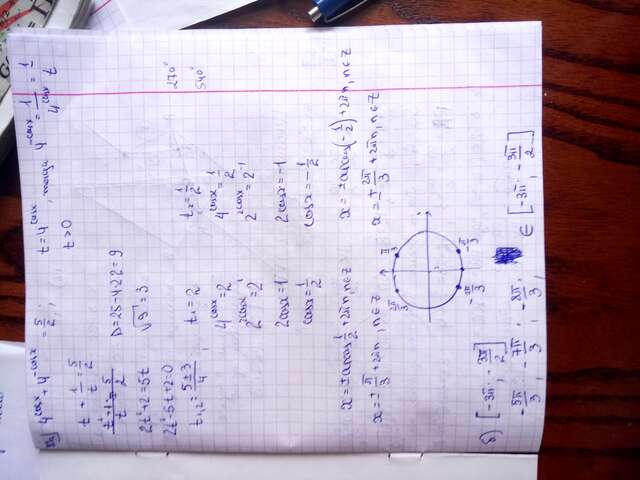 4^cosx + 4^-cosx = 5/2; t = 4^cosx, тогда 4^-cosx = 1/4^cosx = 1/t
t + 1/t = 5/2 t > 0
t²+1/t = 5/2
2t²+2=5t D=25-4·2·2=9
2t²-5t+2=0 √9 = 3
t1,2 = 5±3/4
t1 = 2 t2 = 1/2 270°
4^cosx = 2 4^cosx = 1/2 540°
2^2cosx = 2^1 2^2cosx = 2^-1
2cosx=1 2cosx=-1
cosx=1/2 cosx=-1/2
x = ±arccos 1/2 + 2πn, n∈Z x = ±arccos(-1/2) + 2πn, n∈Z
x = ± π/3 + 2πn, n∈Z x = ± 2π/3 + 2πn, n∈Z
2π/3 π/3
-π/3
б) [-3π; -3π/2]
-5π/3; -7π/3; -8π/3; ∈ [-3π; -3π/2]